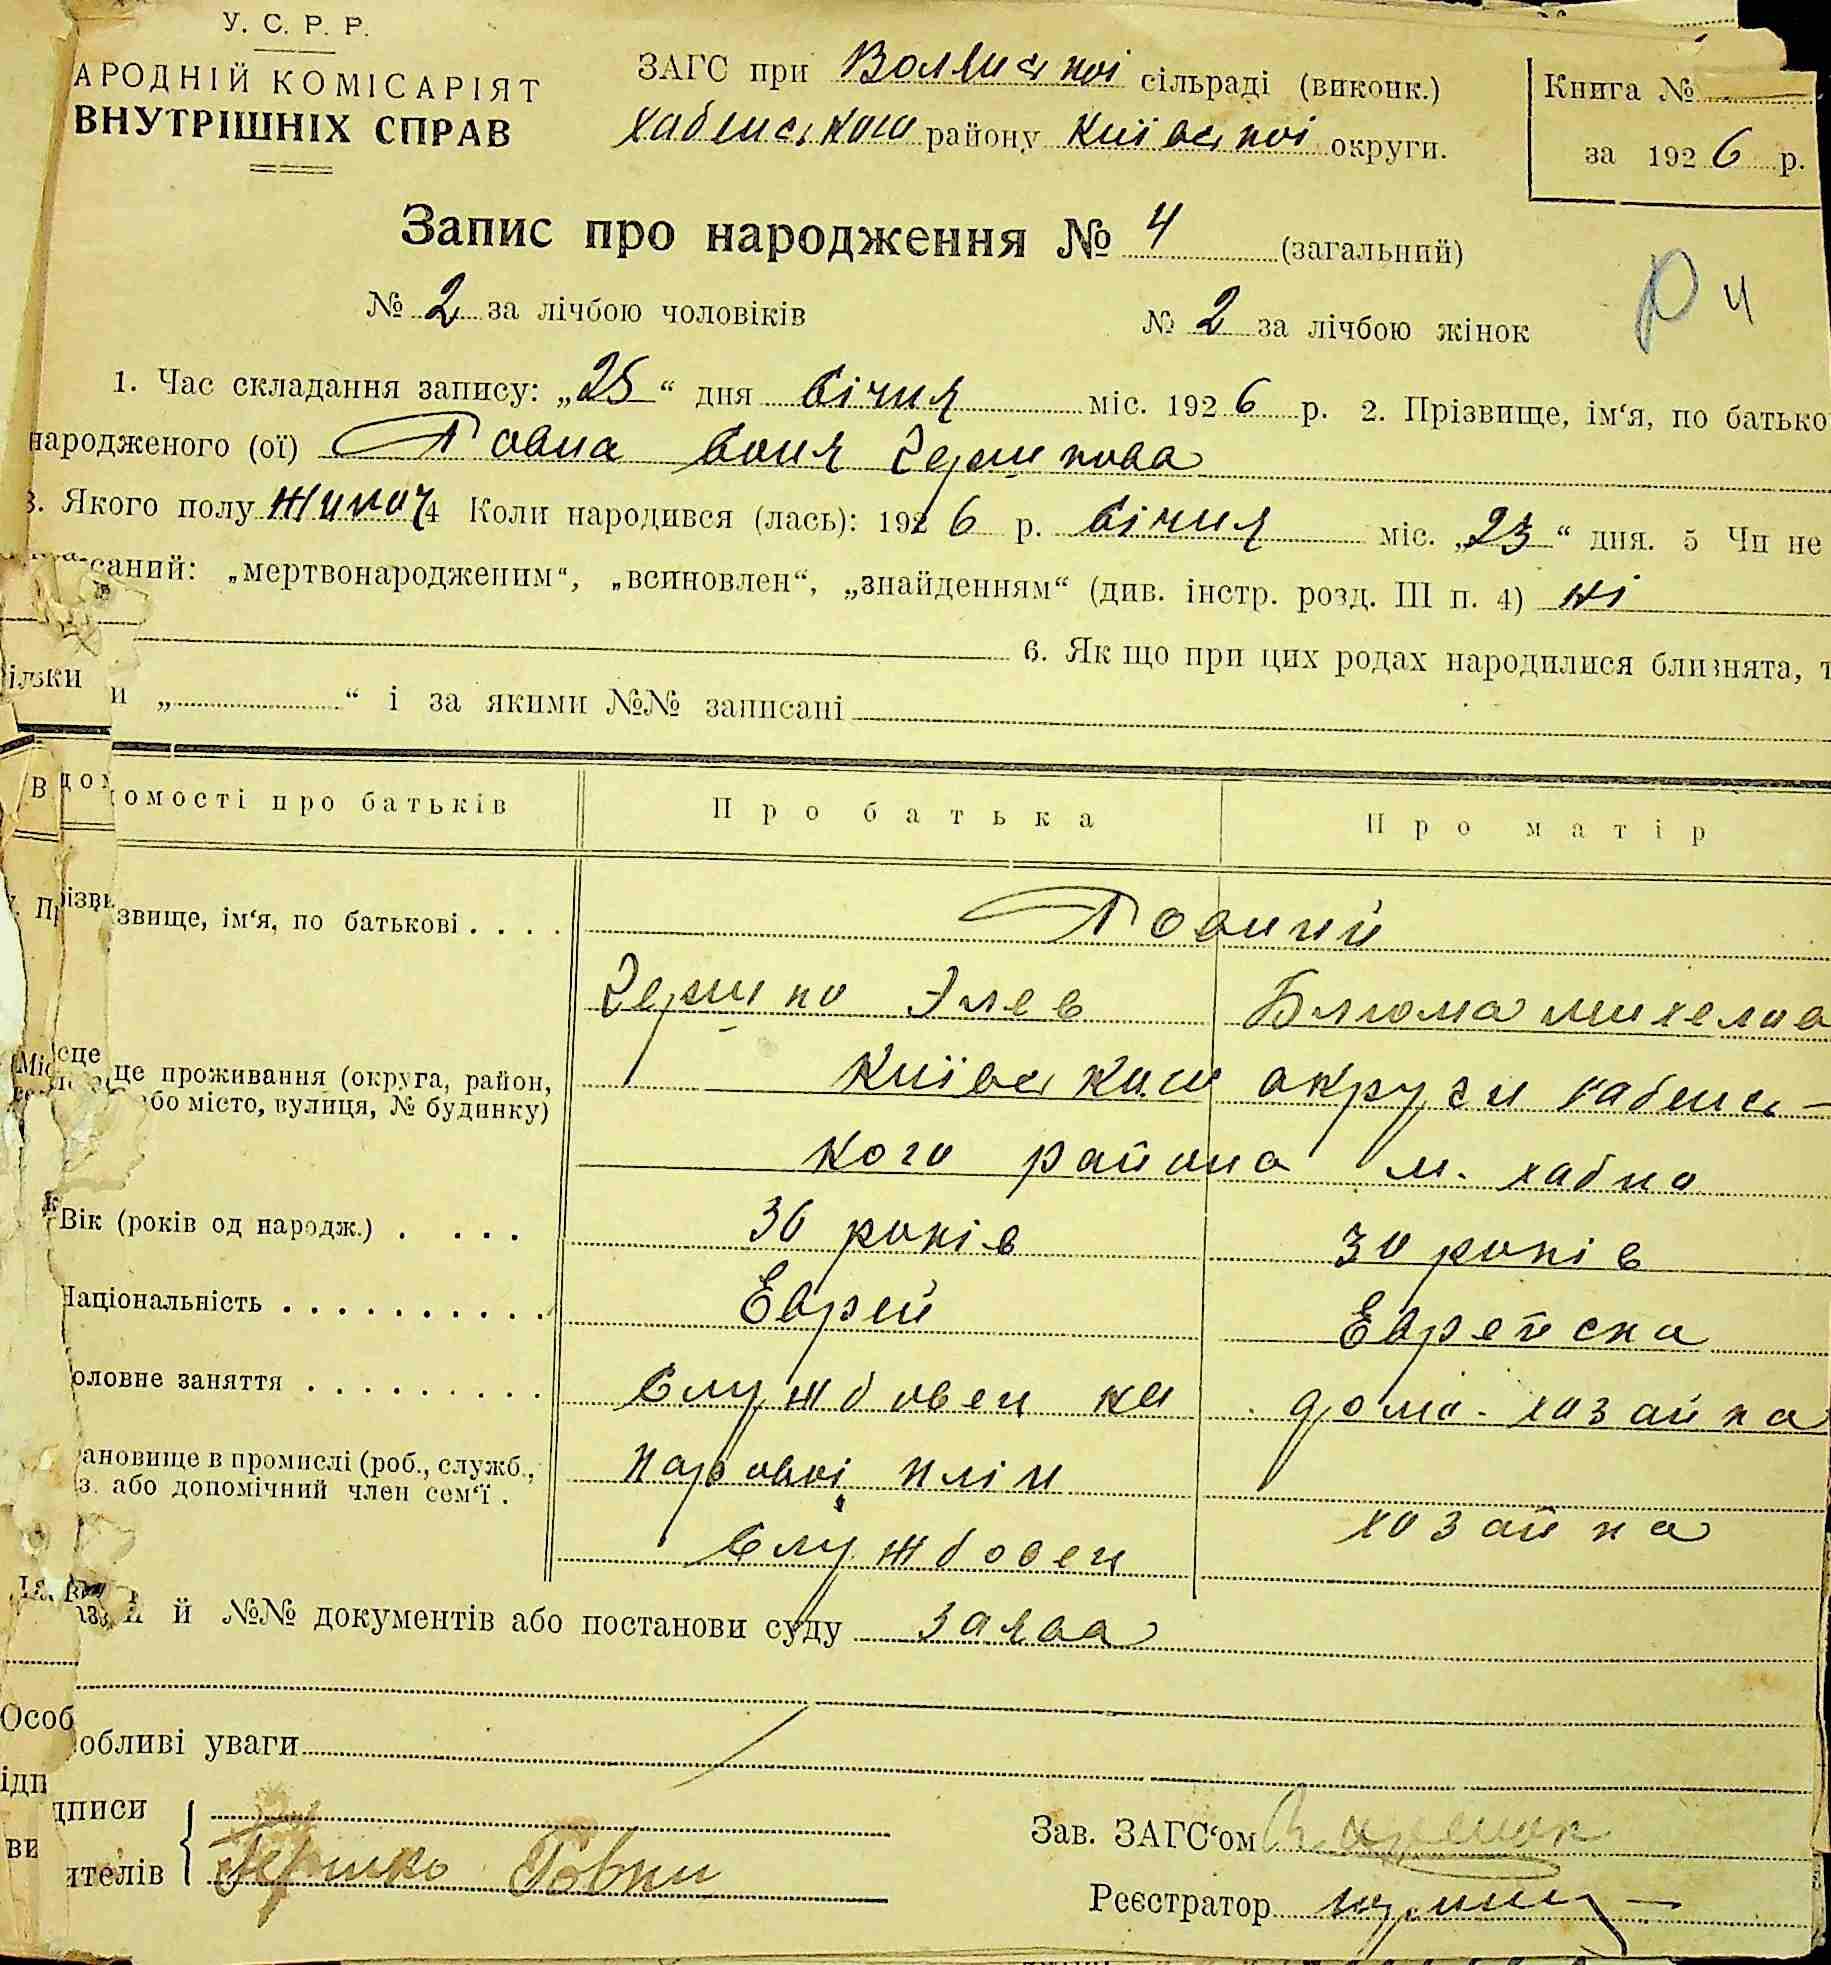 У. С. Р. Р.
АРОДНІЙ КОМІСАРІЯТ
ВНУТРІШНІХ СПРАВ
ЗАГС при Волисної сільраді (виконк.)
Хабенського району Київської округи.
Книга №
за 1926 р.
Запис про народження № 4 (загальний)
№ 2 за лічбою чоловіків № 2 за лічбою жінок
Р 4
1. Час складання запису: „25“ дня січня міс. 1926 р. 2. Прізвище, ім‘я, по батько
народженого (ої) Ровна Соня Гершкова
3. Якого полу жиноч 4 Коли народився (лась): 1926 р. січня міс. „23“ дня. 5 Чи не
саний: „мертвонародженим“, „всиновлен“, „знайденням“ (див. інстр. розд. III п. 4) ні
6. Як що при цих родах народилися близнята, т
ільки и „ “ і за якими №№ записані
В домості про батьків Про батька Про матір
Прізвище, ім‘я, по батькові Ровний
Гершко Элев Блюма Михелва
Місце проживання (округа, район, Київськой округи Хабенсь-
або місто, вулиця, № будинку)
кого района м. Хабно
Вік (років од народж.) 36 років 30 років
Національність Еврей Еврейска
оловне заняття Службовец на домо-хозайка
ановище в промислі (роб., служб., парової млин
з. або допомічний член сем‘ї . Службовец хозайка
й №№ документів або постанови суду заява
Особливі уваги
ідписи
Гершко Ровни
ителів
Зав. ЗАГС‘ом
Реєстратор